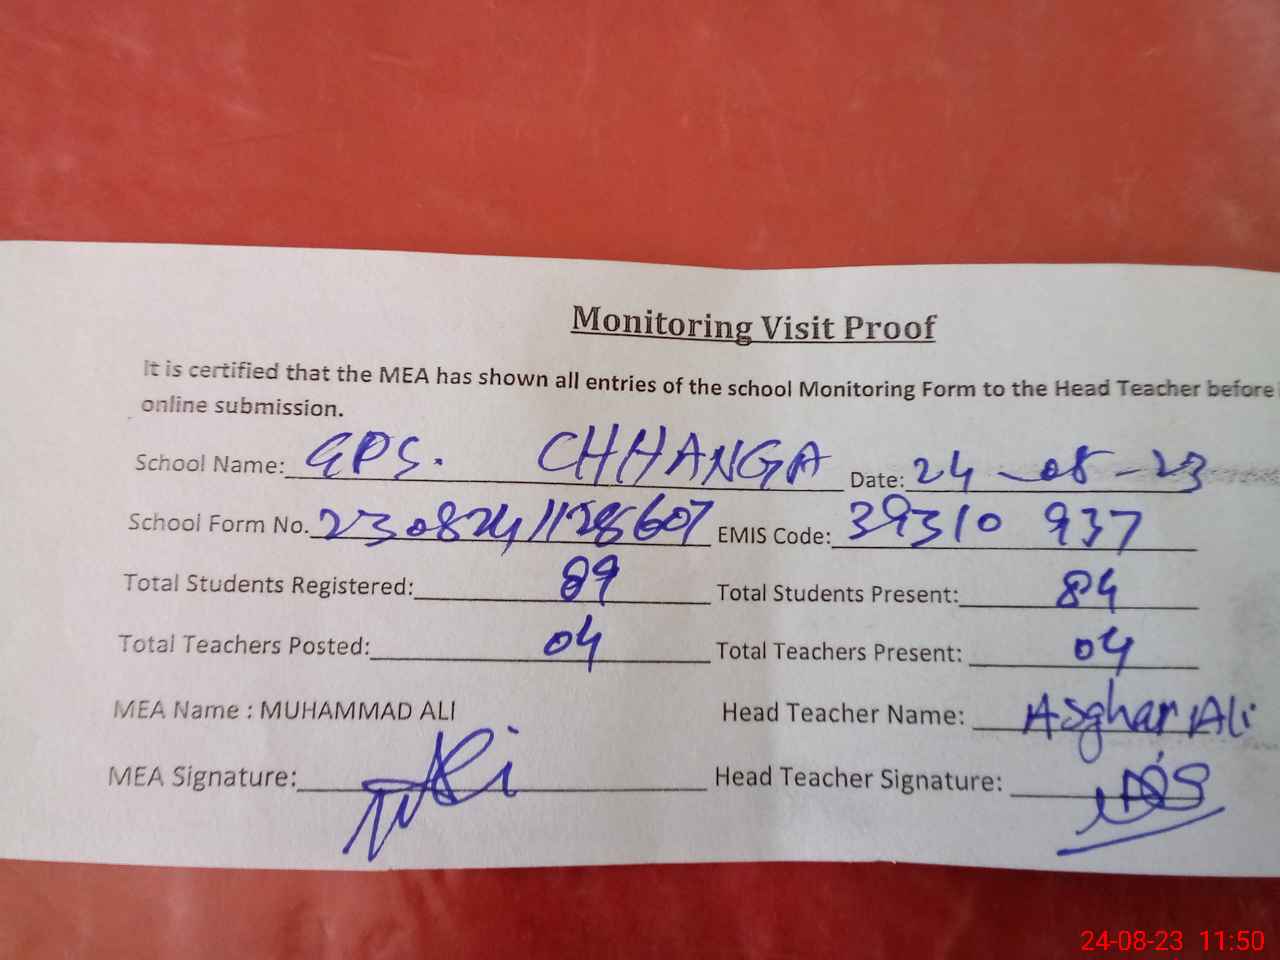 Monitoring Visit Proof
It is certified that the MEA has shown all entries of the school Monitoring Form to the Head Teacher before
online submission.
School Name: GPS. CHHANGA Date: 24-08-23
School Form No. 2308241128607 EMIS Code: 39310 937
Total Students Registered: 89 Total Students Present: 84
Total Teachers Posted: 04 Total Teachers Present: 04
MEA Name : MUHAMMAD ALI Head Teacher Name: Asghar Ali
MEA Signature: Head Teacher Signature:
24-08-23 11:50